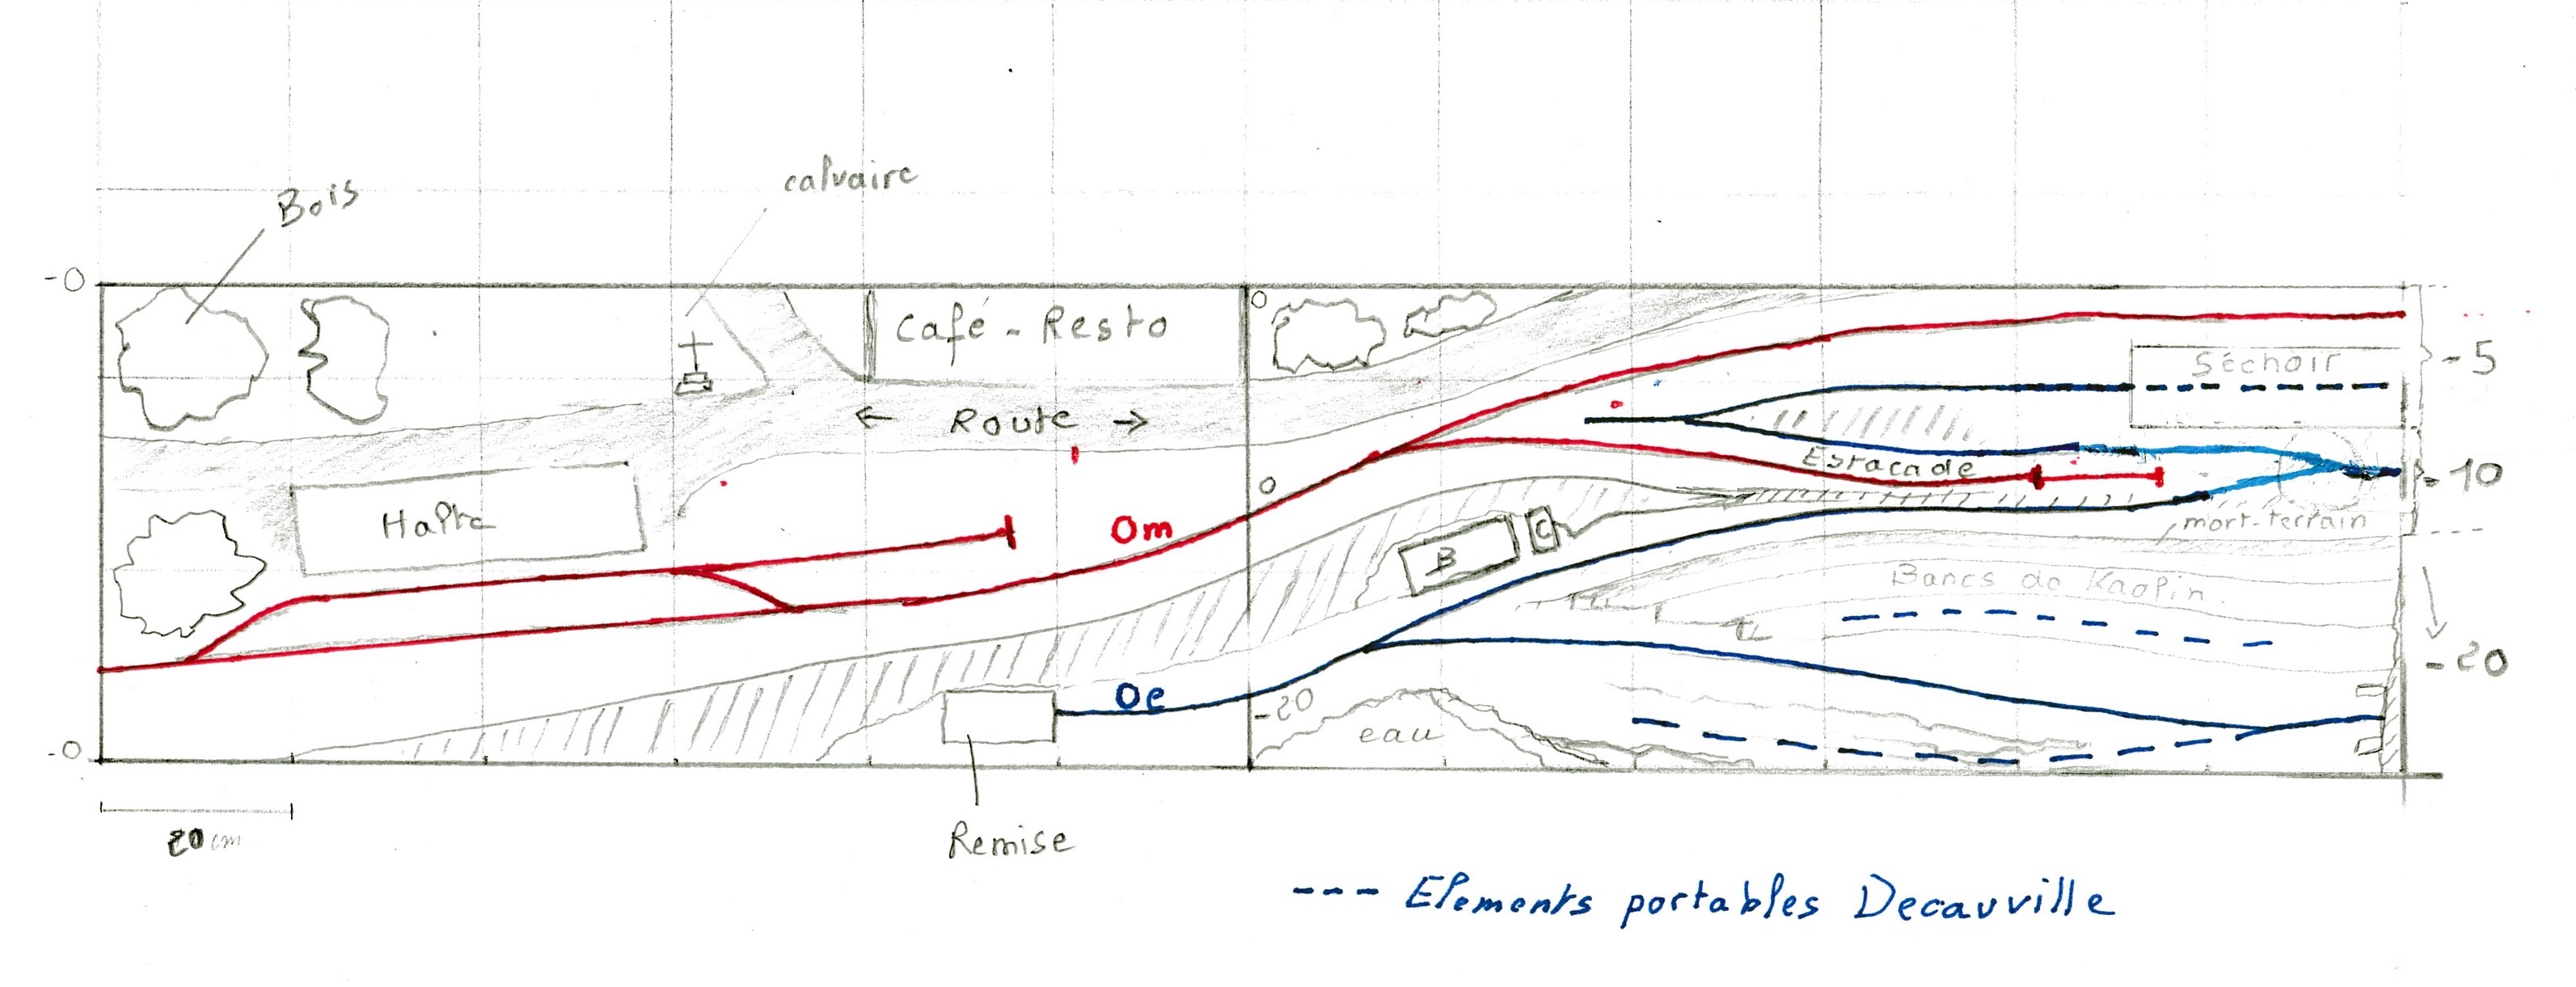 Bois
calvaire
-0
0
Café - Resto
Séchoir
-5
← Route →
Estacade
-10
0
Halte
Om
mort-terrain
B
C
Bancs de Kaolin
-20
Oe
-20
eau
-0
20cm
Remise
--- Elements portables Decauville